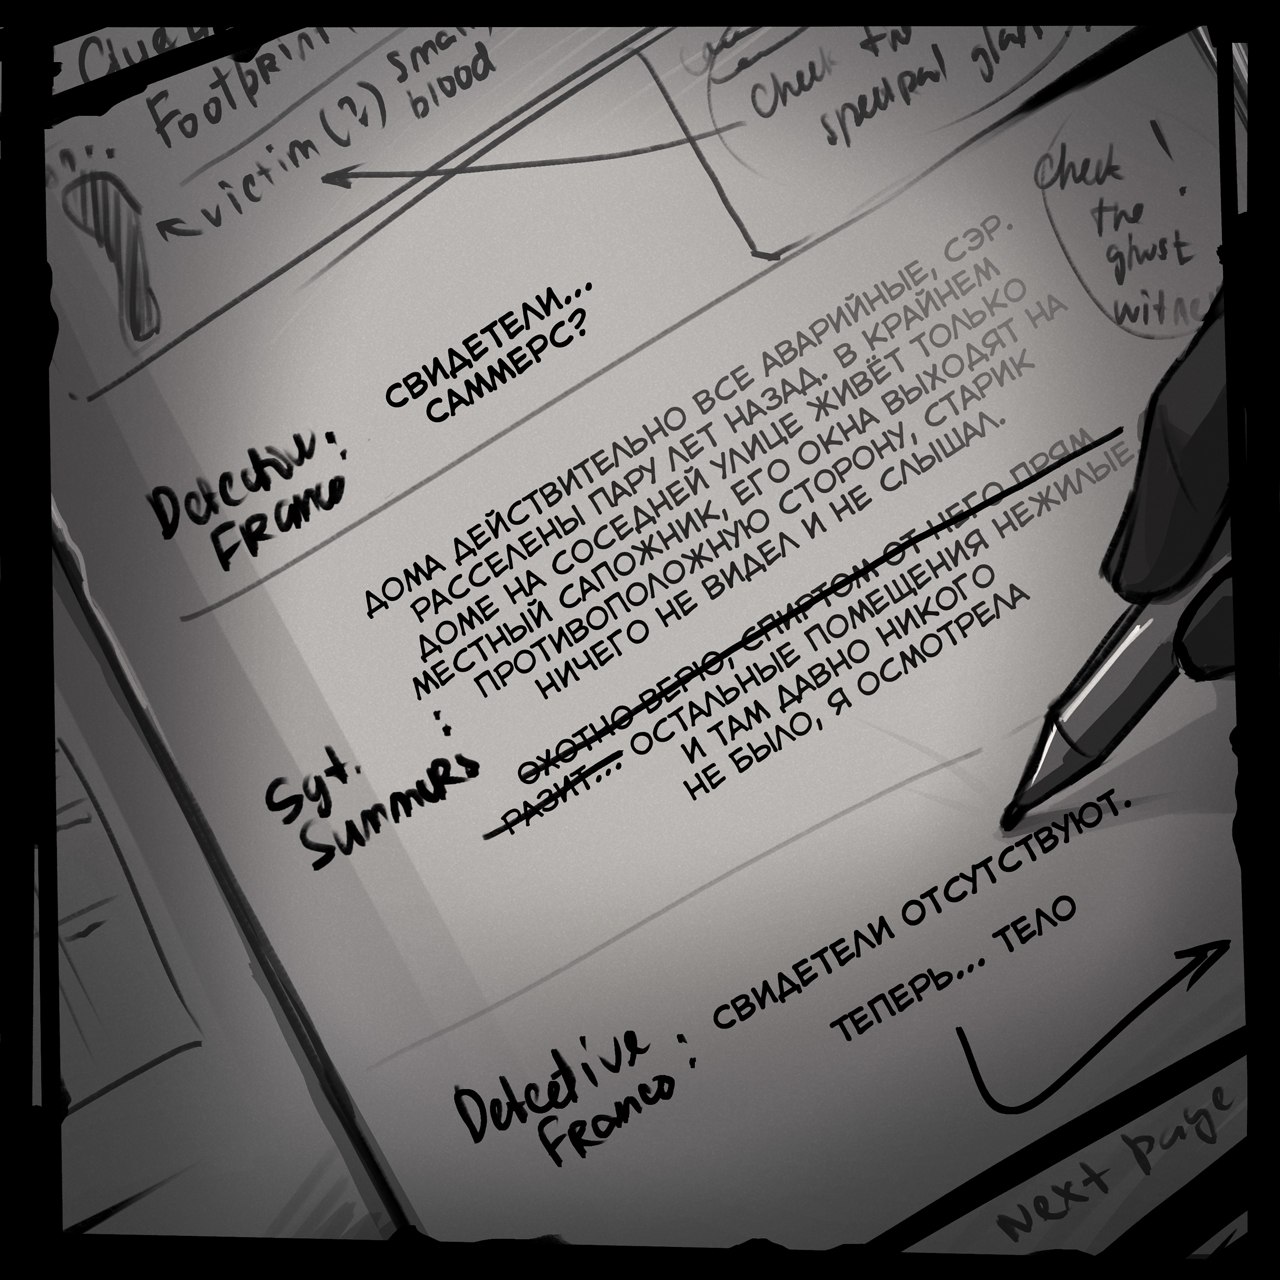 Footprint
victim (?) small
blood
Check the
spectral
Check !
the
ghost
СВИДЕТЕЛИ...
САММЕРС?
Detective :
Franco
ДОМА ДЕЙСТВИТЕЛЬНО ВСЕ АВАРИЙНЫЕ, СЭР.
РАССЕЛЕНЫ ПАРУ ЛЕТ НАЗАД. В КРАЙНЕМ
ДОМЕ НА СОСЕДНЕЙ УЛИЦЕ ЖИВЁТ ТОЛЬКО
МЕСТНЫЙ САПОЖНИК, ЕГО ОКНА ВЫХОДЯТ НА
ПРОТИВОПОЛОЖНУЮ СТОРОНУ, СТАРИК
НИЧЕГО НЕ ВИДЕЛ И НЕ СЛЫШАЛ.
Sgt. :
Summers
ОХОТНО ВЕРЮ, СПИРТОМ ОТ НЕГО ПРЯМ
РАЗИТ... ОСТАЛЬНЫЕ ПОМЕЩЕНИЯ НЕЖИЛЫЕ,
И ТАМ ДАВНО НИКОГО
НЕ БЫЛО, Я ОСМОТРЕЛА
Detective :
Franco
СВИДЕТЕЛИ ОТСУТСТВУЮТ.
ТЕПЕРЬ... ТЕЛО
Next page